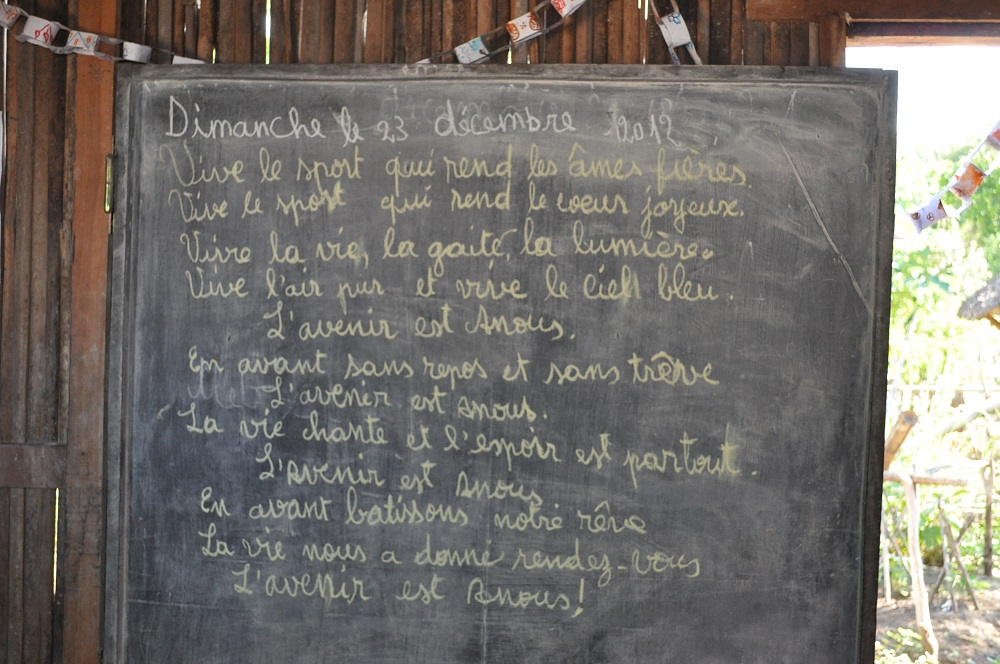 Dimanche le 23 décembre 2012
Vive le sport qui rend les âmes fières.
Vive le sport qui rend le coeur joyeux.
Vivre la vie, la gaité, la lumière.
Vive l'air pur et vive le ciel bleu.
L'avenir est Anous.
En avant sans repos et sans trêve
L'avenir est Anous.
La vie chante et l'espoir est partout.
L'avenir est Anous
En avant batissons notre rêve
La vie nous a donné rendez-vous
L'avenir est Anous!